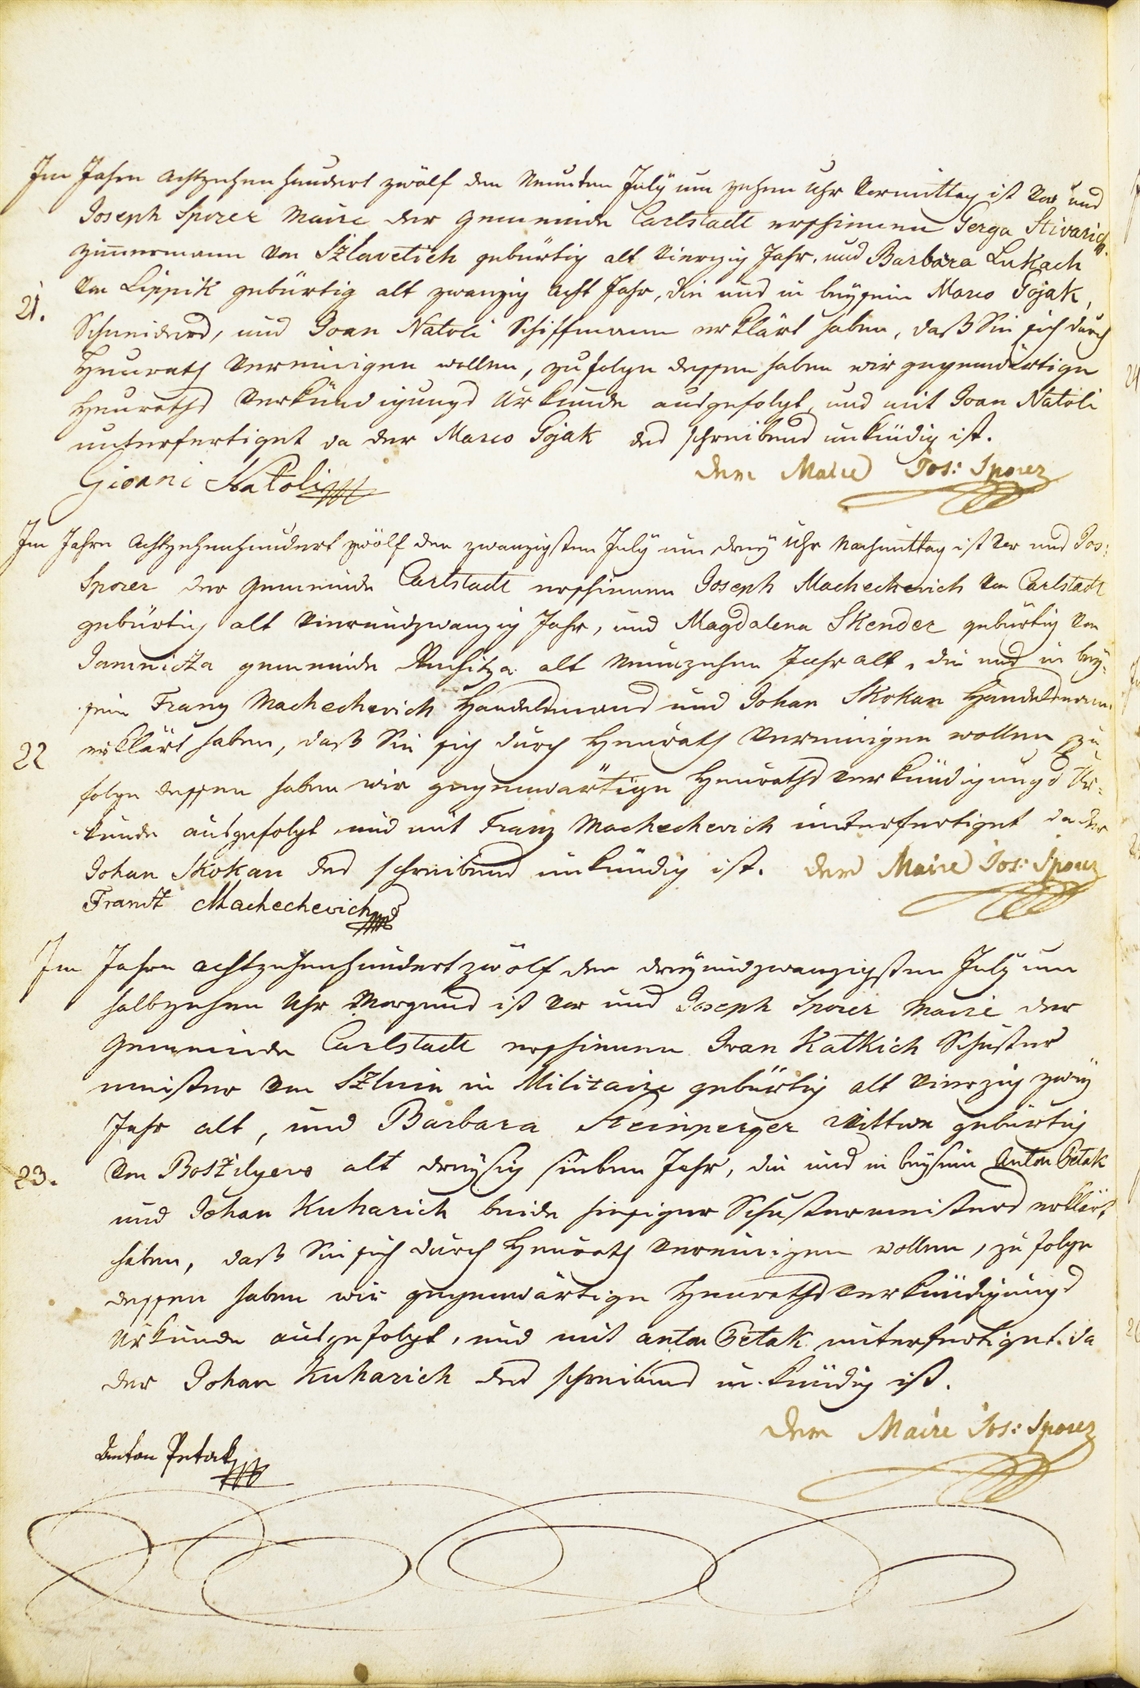 Im Jahre Achtzehenhundert zwölf den Neunten July um zehen Uhr Vormittag ist vor uns
Joseph Sporer Maire der Gemeinde Carlstadt erschienen Gerga Stivarich
Zimermann von Szlavetich gebürtig alt Vierzig Jahr, und Barbara Lukach
21. von Lippik gebürtig alt zwanzig acht Jahr, die uns in beysein Marco Gojak,
Schneiders, und Joan Natoli Schiffmann erklärt haben, daß Sie sich durch
Heurath vereinigen wollen, zufolge dessen haben wir gegenwärtige
Heuraths Verkündigungs Urkunde ausgefolgt, und mit Joan Natoli
unterfertiget da der Marco Gojak des schreibens unkündig ist.
Giovani Natoli
Der Maire Jos: Sporer
Im Jahre Achtzehenhundert zwölf den zwanzigsten July um drey Uhr Nachmittag ist vor uns Jos:
Sporer der Gemeinde Carlstadt erschienen Joseph Machechevich von Carlstadt
gebürtig alt Vierundzwanzig Jahr, und Magdalena Skender gebürtig von
Jamnicza gemeinde alt Neunzehen Jahr alt, die uns in bey-
sein Franz Machechevich Handelsmans und Johan Skokan Handelsmann
22 erklärt haben, daß Sie sich durch Heurath vereinigen wollen zu-
folge dessen haben wir gegenwärtige Heuraths Verkündigungs Ur-
kunde ausgefolgt und mit Franz Machechevich unterfertiget da der
Johan Skokan des schreibens unkündig ist. Der Maire Jos: Sporer
Frantz Machechevich
Im Jahre achtzehenhundert zwölf den dreyundzwanzigsten July um
halbzehen Uhr Morgens ist vor uns Joseph Sporer Maire der
Gemeinde Carlstadt erschienen Ivan Katkich Schuster
meister von Szluin in Militaire gebürtig alt Vierzig zwey
Jahr alt, und Barbara Steinperger Wittwe gebürtig
23. von Bosztilyevo alt dreysig sieben Jahr, die uns in beysein Anton Petak
und Johan Kuharich beide hiesiger Schustermeisters erklärt
haben, daß Sie sich durch Heurath vereinigen wollen, zu folge
dessen haben wir gegenwärtige Heuraths Verkündigungs
Urkunde ausgefolgt, und mit Anton Petak unterfertiget. da
der Johan Kuharich des schreibens unkündig ist.
Der Maire Jos: Sporer
Anton Petak